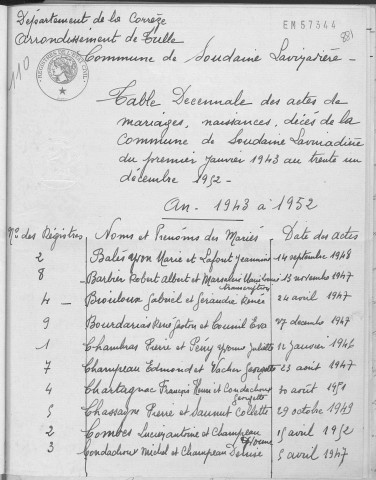 Département de la Corrèze
EM 57344
Arrondissement de Tulle
Commune de Soudaine Lavinadière -
110
Table Decennale des actes de
mariages, naissances, décés de la
Commune de Soudaine Lavinadière
du premier janvier 1943 au trente un
décembre 1952 -
An. 1943 à 1952
Nos des Régistres Noms et Prenoms des Mariés Date des actes
2 Marie et Lafont Jeannine 14 septembre 1948
8 Barbin Robert Albert et 13 novembre 1947
transcription
4 Gabriel et Renée 24 avril 1947
9 Bourdarias René Gaston et Eva 27 decembre 1947
1 Chambras Pierre et Yvonne Juliette 12 janvier 1946
7 Champeau Edmond et Vacher Georgette 23 aout 1947
4 Chartagnac François Henri et Condachoux 30 août 1951
Georgette
5 Chassaing Pierre et Collette 29 octobre 1949
2 Combes Lucien antoine et Champeau 15 avril 1952
Yvonne
3 Condachoux Michel et Champeau Denise 5 avril 1947